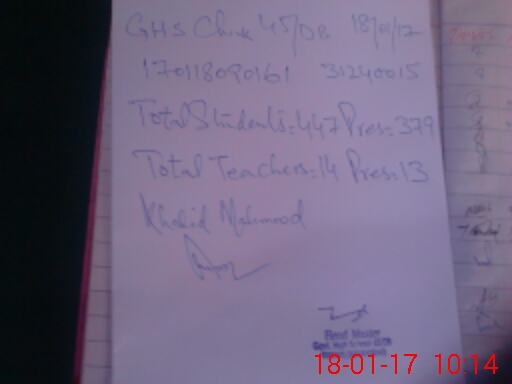 GHS Chak 45/DB 18/01/17
170118090161 31240015
Total Students=447 Pres=379
Total Teachers=14 Pres=13
Khalid Mahmood
Head Master
Govt. High School 45/DB
18-01-17 10:14